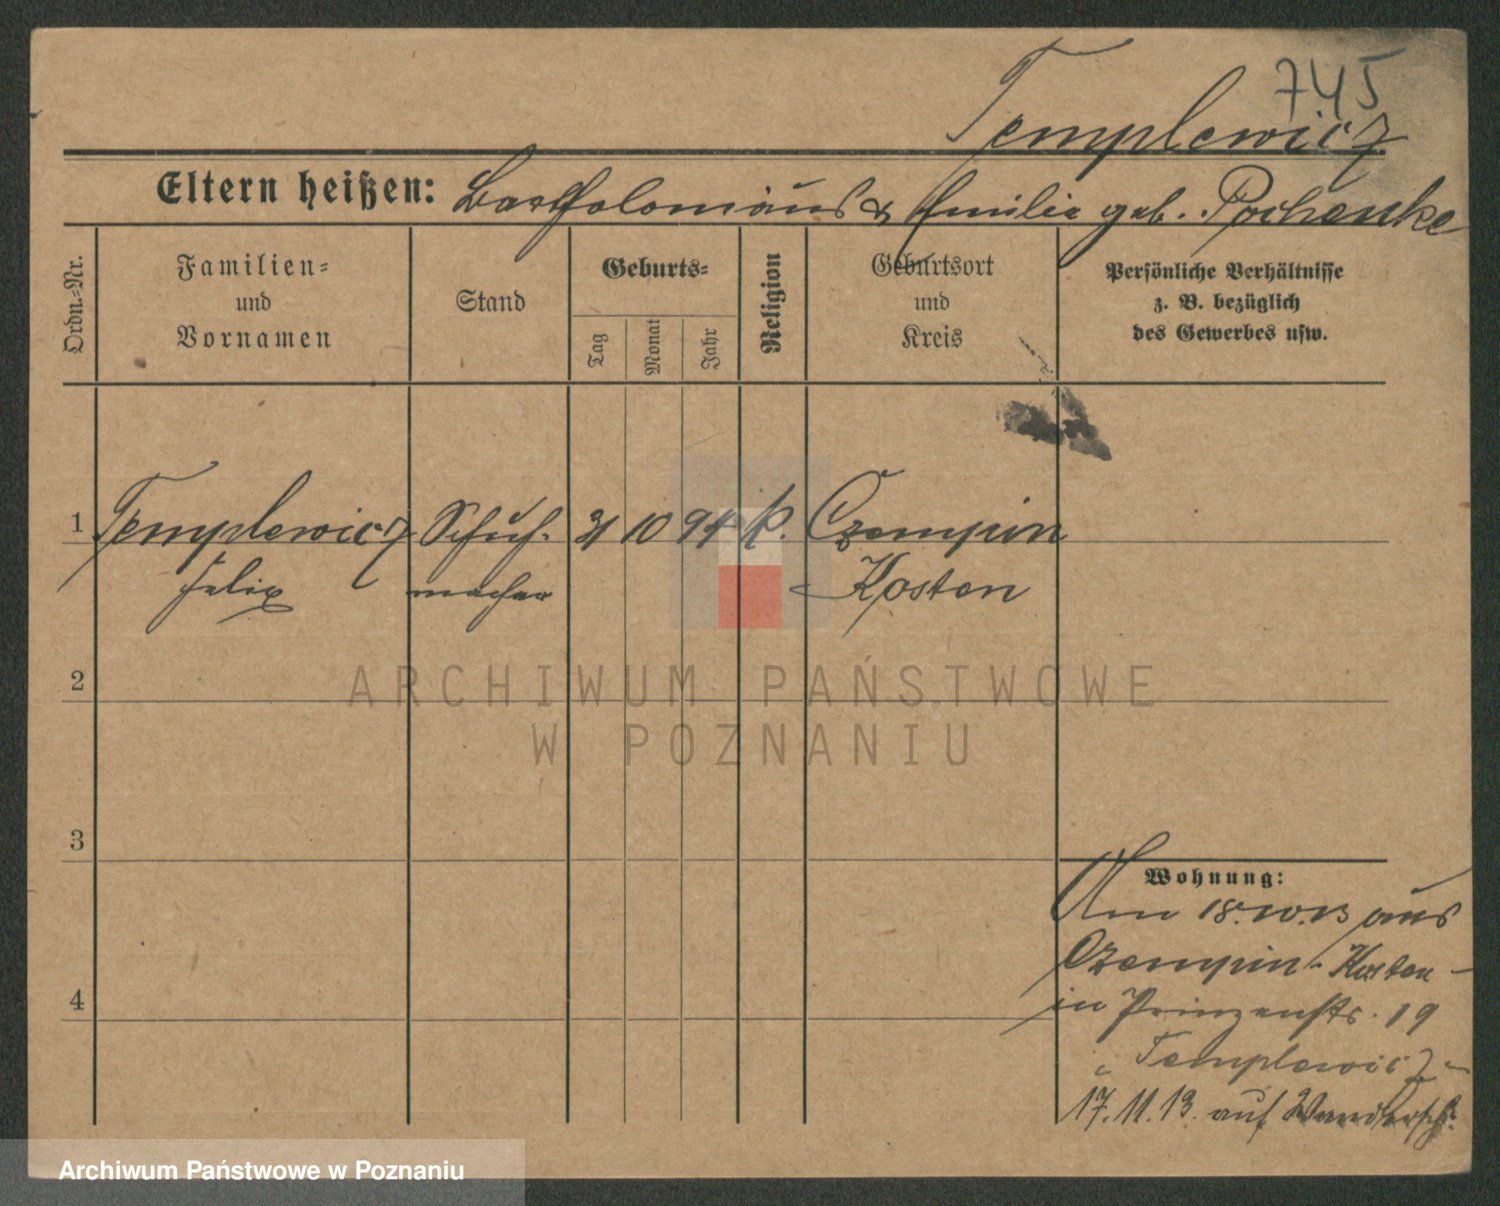 745
Templewicz
Eltern heißen: Bartholomäus & Emilie geb.
Ordn.-Nr.
Familien-
und
Vornamen
Stand
Geburts-
Tag
Monat
Jahr
Religion
Geburtsort
und
Kreis
Persönliche Verhältnisse
z. B. bezüglich
des Gewerbes usw.
1 Templewicz Schuh- 31 10 94 k. Czempin
Felix macher Kosten
2
ARCHIWUM PAŃSTWOWE
W POZNANIU
3
Wohnung:
Am 18.10.13 aus
Czempin - Kosten -
4
in Prinzenstr. 19
Templewicz -
17.11.13. auf Wandersch.
Archiwum Państwowe w Poznaniu